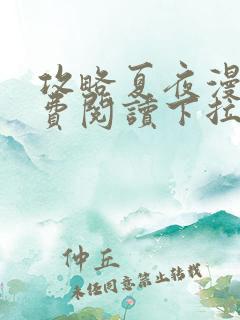 攻略夏夜漫
費閱讀下拉
仲丘
未经同意禁止转载